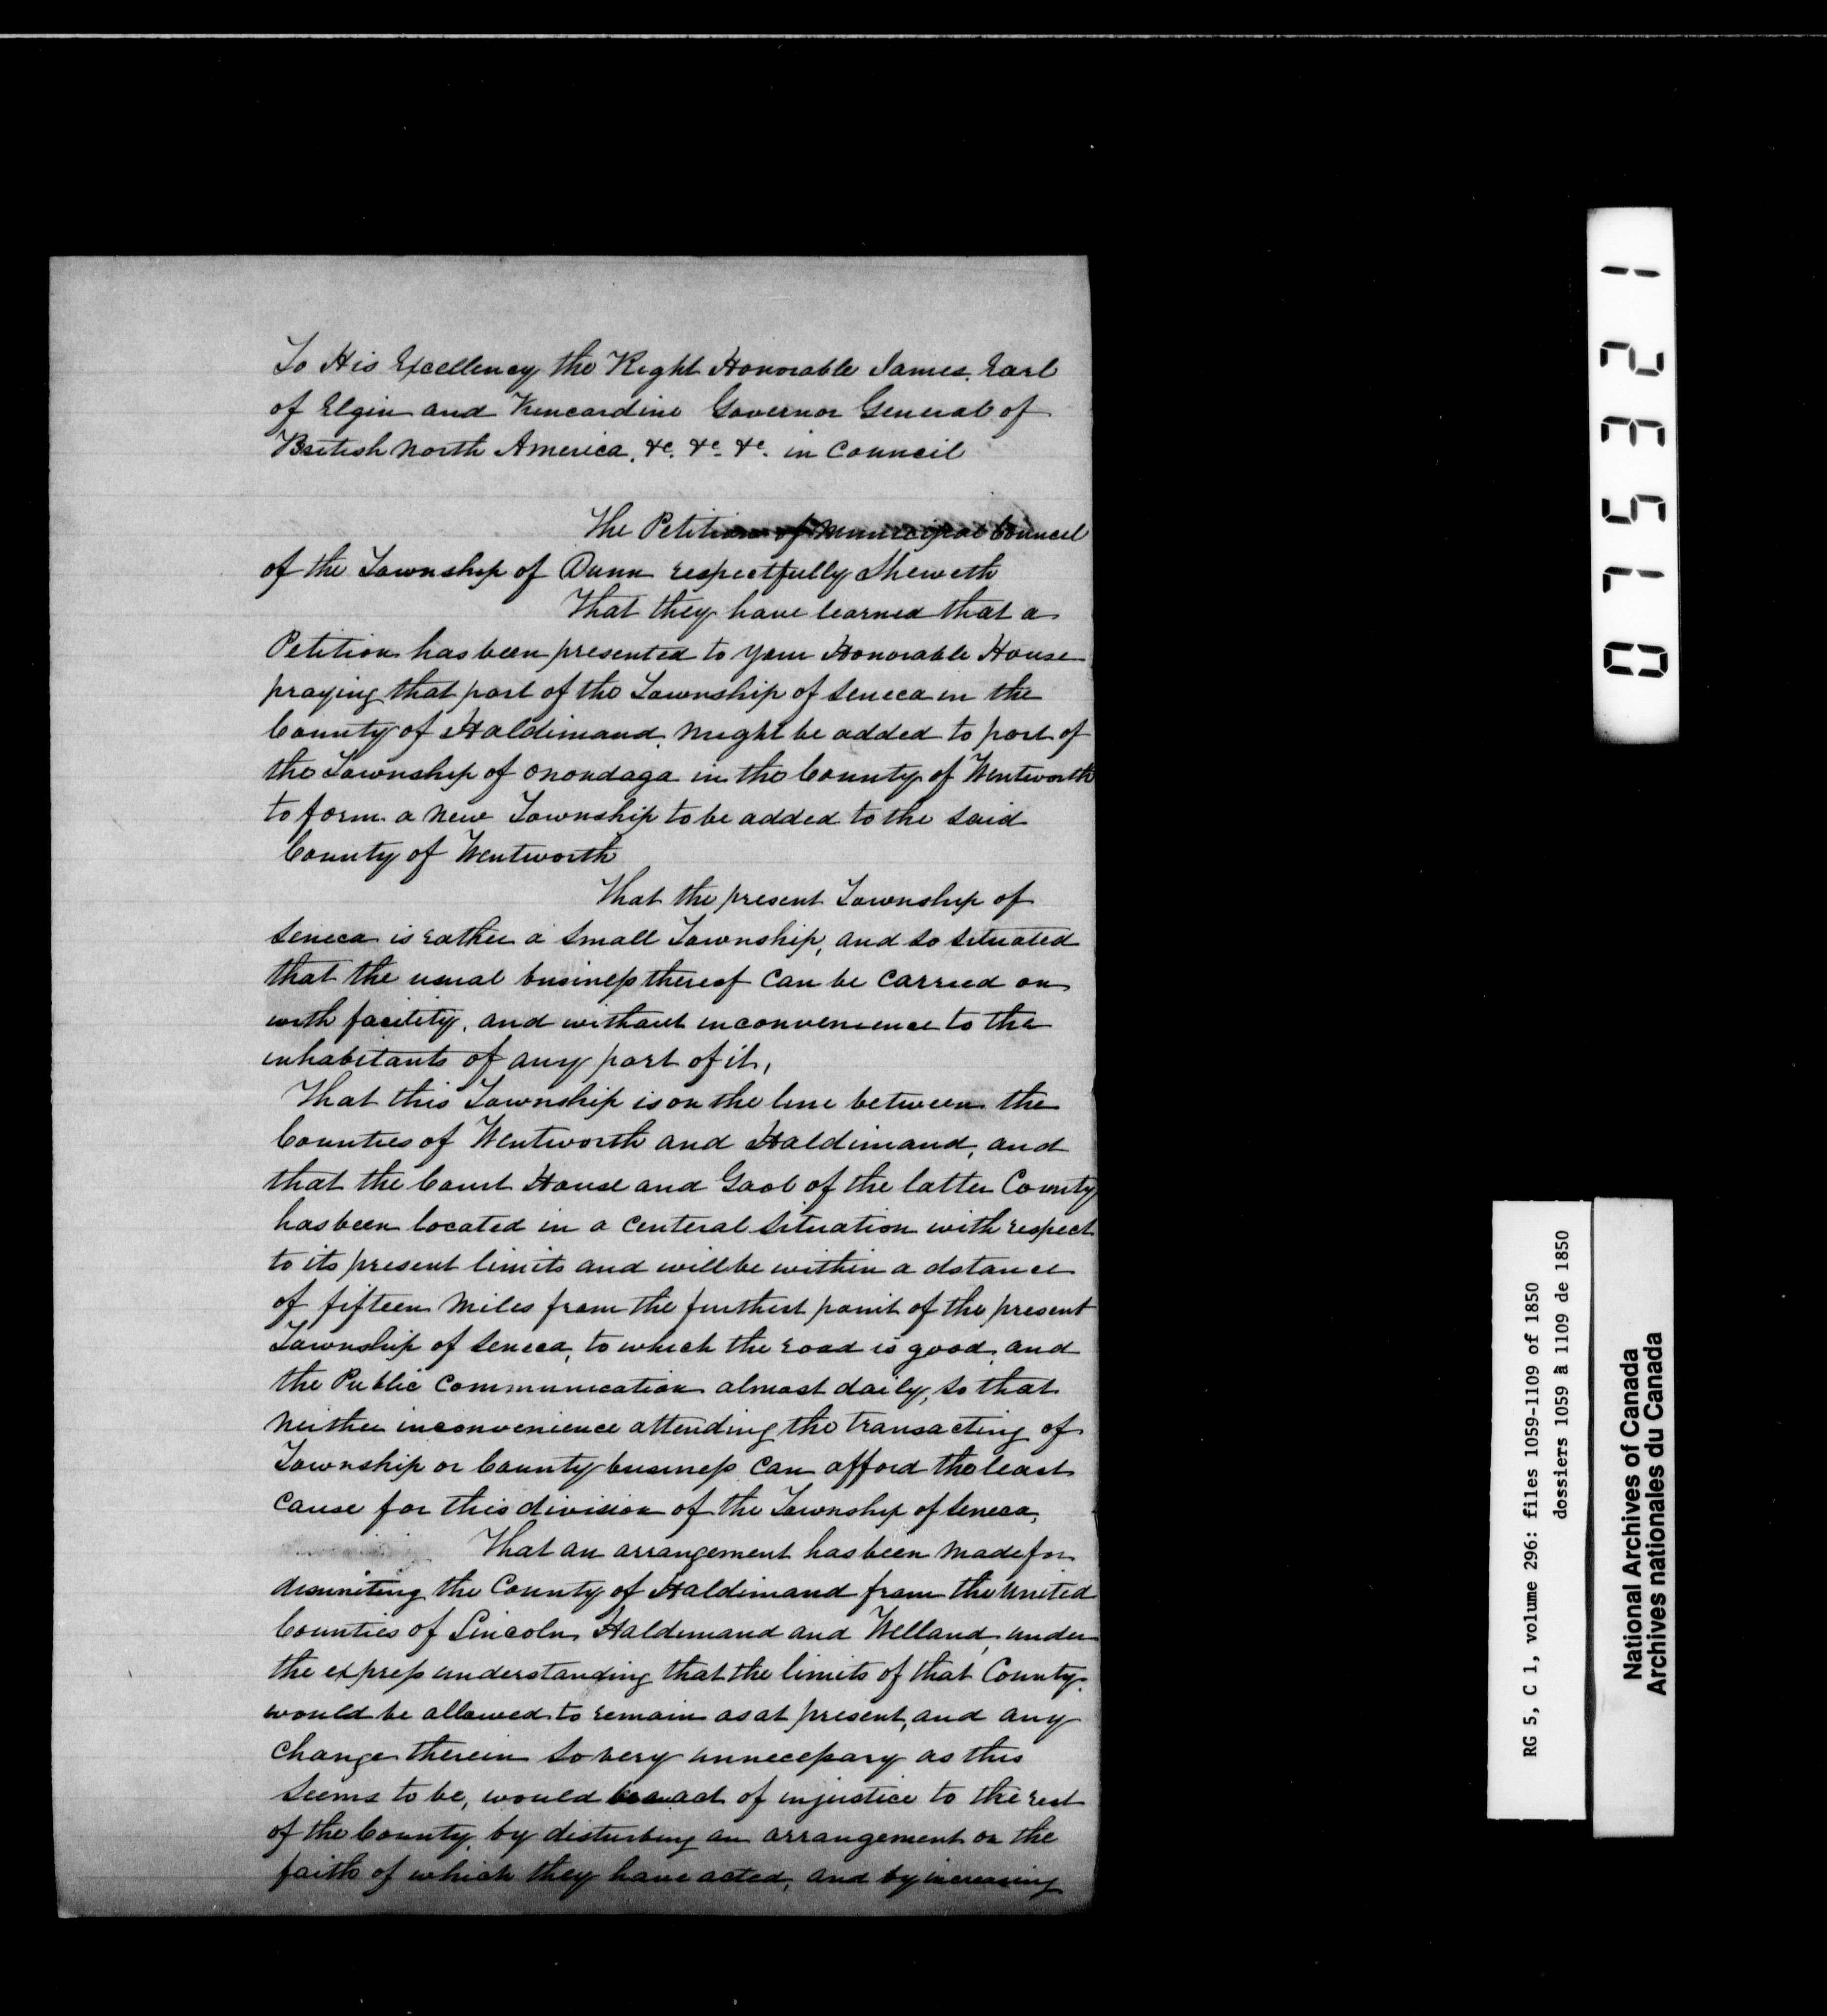 To His Excellency the Right Honorable James Earl
of Elgin and Kincardine Governor General of
British North America, &c. &c. &c. in Council
The Petition of Municipal Council
of the Township of Dunn respectfully Sheweth
That they have learned that a
Petition has been presented to your Honorable House
praying that part of the Township of Seneca in the
County of Haldimand, might be added to part of
the Township of Onondaga in the County of Wentworth
to form a new Township to be added to the said
County of Wentworth
That the present Township of
Seneca is rather a small Township, and so situated
that the usual business thereof can be carried on
with facility, and without inconvenience to the
inhabitants of any part of it,
That this Township is on the line between the
Counties of Wentworth and Haldimand, and
that the Court House and Gaol of the latter County
has been located in a centeral situation with respect
to its present limits and will be within a dstance
of fifteen miles from the furthest point of the present
Township of Seneca, to which the road is good, and
the Public Communication almost daily, so that
neither inconvenience attending the transacting of
Township or County business can afford the least
cause for this division of the Township of Seneca,
That an arrangement has been made for
disuniting the County of Haldimand from the United
Counties of Lincoln, Haldimand and Welland, under
the express understanding that the limits of that County
would be allowed to remain as at present, and any
change therein so very unnecessary as this
seems to be, would be an act of injustice to the rest
of the County, by disturbing an arrangement on the
faith of which they have acted, and by increasing
075321
RG 5, C 1, volume 296: files 1059-1109 of 1850
dossiers 1059 à 1109 de 1850
National Archives of Canada
Archives nationales du Canada